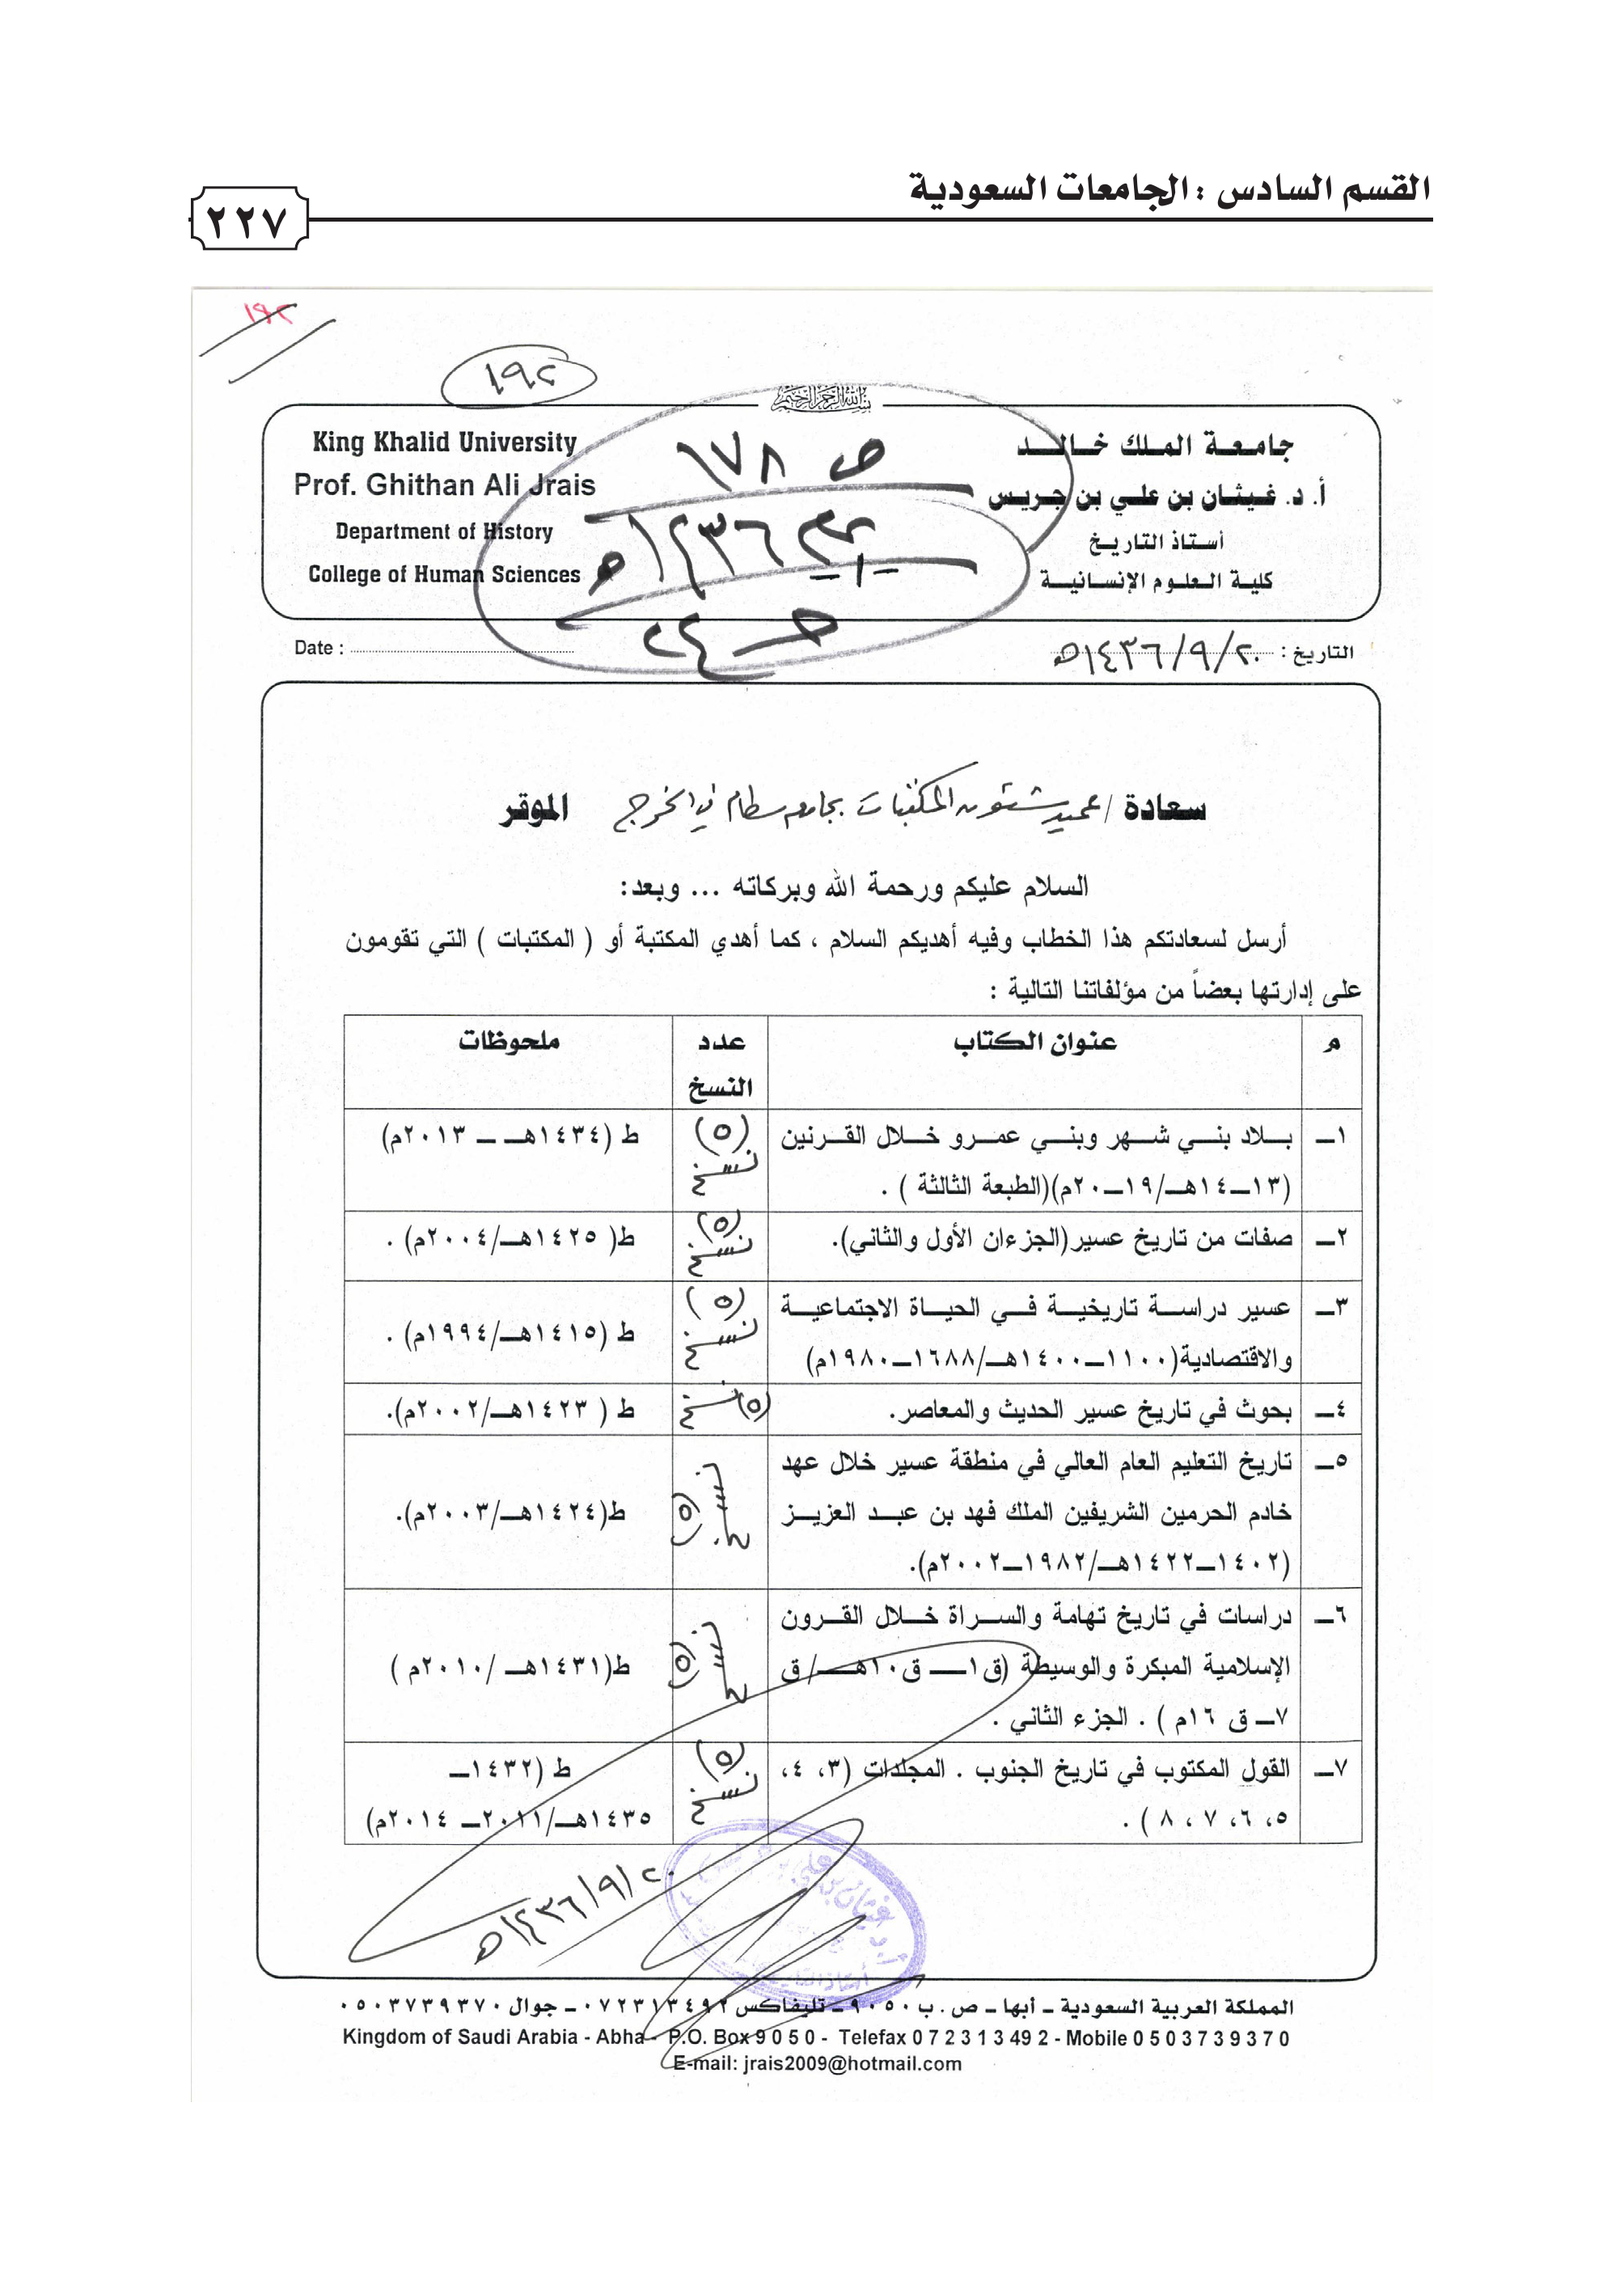 القسم السادس : الجامعات السعودية
٢٢٧
١٩٢
١٩٢
بسم الله الرحمن الرحيم
جامعة الملك خالد
أ. د. غيثان بن علي بن جريس
أستاذ التاريخ
كلية العلوم الإنسانية
King Khalid University
Prof. Ghithan Ali Jrais
Department of History
College of Human Sciences
ص ١٧٨
١٤٣٦هـ
٢٤
التاريخ : ٢٠/٩/١٤٣٦هـ
Date :
سعادة / عميد شئون المكتبات بجامعة سطام في الخرج الموقر
السلام عليكم ورحمة الله وبركاته ... وبعد:
أرسل لسعادتكم هذا الخطاب وفيه أهديكم السلام ، كما أهدي المكتبة أو ( المكتبات ) التي تقومون
على إدارتها بعضاً من مؤلفاتنا التالية :
م عنوان الكتاب عدد النسخ ملحوظات
١ـ بلاد بني شهر وبني عمرو خلال القرنين
(١٣ـ١٤هـ/١٩ـ٢٠م)(الطبعة الثالثة ) .
(٥) نسخ
ط (١٤٣٤هـ ـ ٢٠١٣م)
٢ـ صفات من تاريخ عسير(الجزءان الأول والثاني).
(٥) نسخ
ط( ١٤٢٥هـ/٢٠٠٤م) .
٣ـ عسير دراسة تاريخية في الحياة الاجتماعية
والاقتصادية(١١٠٠ـ١٤٠٠هـ/١٦٨٨ـ١٩٨٠م)
(٥) نسخ
ط (١٤١٥هـ/١٩٩٤م) .
٤ـ بحوث في تاريخ عسير الحديث والمعاصر.
(٥) نسخ
ط ( ١٤٢٣هـ/٢٠٠٢م).
٥ـ تاريخ التعليم العام العالي في منطقة عسير خلال عهد
خادم الحرمين الشريفين الملك فهد بن عبد العزيز
(١٤٠٢ـ١٤٢٢هـ/١٩٨٢ـ٢٠٠٢م).
(٥) نسخ
ط(١٤٢٤هـ/٢٠٠٣م).
٦ـ دراسات في تاريخ تهامة والسراة خلال القرون
الإسلامية المبكرة والوسيطة (ق١ـ ق١٠هـ/ ق
٧ـ ق ١٦م ) . الجزء الثاني .
(٥) نسخ
ط(١٤٣١هـ /٢٠١٠م )
٧ـ القول المكتوب في تاريخ الجنوب . المجلدات (٣، ٤،
٥، ٦، ٧ ، ٨ ) .
(٥) نسخ
ط (١٤٣٢ـ
١٤٣٥هـ/٢٠١١ـ ٢٠١٤م)
٢٠/٩/١٤٣٦هـ
المملكة العربية السعودية ـ أبها ـ ص . ب ٩٠٥٠ ـ تليفاكس ٠٧٢٣١٣٤٩٢ ـ جوال ٠٥٠٣٧٣٩٣٧٠
Kingdom of Saudi Arabia - Abha - P.O. Box 9 0 5 0 - Telefax 0 7 2 3 1 3 49 2 - Mobile 0 5 0 3 7 3 9 3 7 0
E-mail: jrais2009@hotmail.com